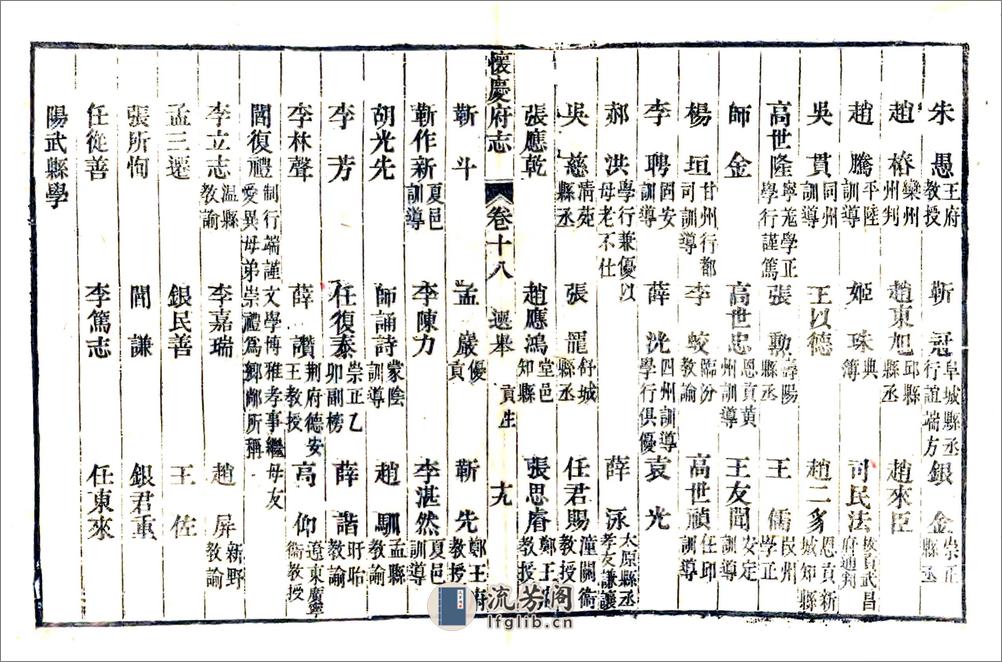 朱愚 王府教授 靳冠 阜城縣丞行誼端方 銀金 崇正縣丞
趙椿 欒州州判 趙東旭 邱縣縣丞 趙來臣
趙騰 平陸訓導 姬珠 典簿 司民法 拔貢武昌府通判
吳貫 同州訓導 王以德 趙二豸 恩貢新城知縣
高世隆 寧羌學正學行謹篤 張勳 壽陽縣丞 王儒 學正
師金 高世忠 恩貢黄州訓導 王友聞 安定訓導
楊垣 甘州行都司訓導 李蛟 臨汾教諭 高世禎 任邱訓導
李聘 固安訓導 薛洸 泗州訓導學行俱優 袁光
郝洪 學行兼優以母老不仕 薛泳 太原縣丞孝友謙讓
吳慈 清苑縣丞 張寵 舒城縣丞 任君賜 潼關衛教授
張應乾 趙應鴻 堂邑知縣 張思睿 鄭王府教授
懷慶府志 卷十八 選舉 貢生 尢
靳斗 孟巖 優貢 靳先 鄭王府教授
靳作新 夏邑訓導 李陳力 李湛然 夏邑訓導
胡光先 師誦詩 蒙陰訓導 趙馴 孟縣教諭
李芳 任復泰 崇正乙卯副榜 薛諧 盱眙教諭
李林聲 薛讚 荆府德安王教授 高仰 遼東廣寧衛教授
閻復禮 制行端謹文學博雅孝事繼母友愛異母弟崇禮爲鄉鄰所稱
李立志 温縣教諭 李嘉瑞 趙屏 新野教諭
孟三遷 銀民善 王佐
張所恂 閻謙 銀君重
任從善 李篤志 任東來
陽武縣學
流芳阁
lfglib.cn